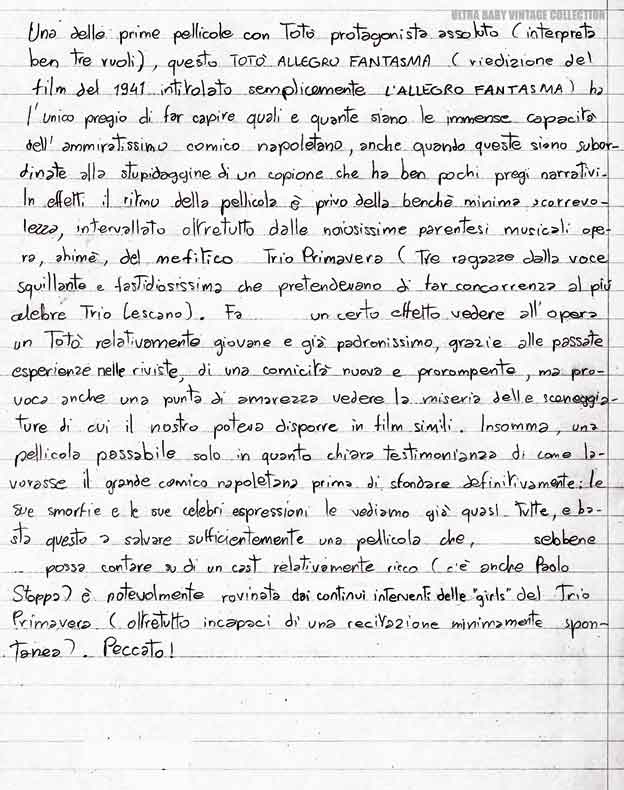 ULTRA BABY VINTAGE COLLECTION
Una delle prime pellicole con Totò protagonista assoluto (interpreta
ben tre ruoli), questo TOTÒ ALLEGRO FANTASMA (riedizione del
film del 1941 intitolato semplicemente L'ALLEGRO FANTASMA) ha
l'unico pregio di far capire quali e quante siano le immense capacità
dell'ammiratissimo comico napoletano, anche quando queste siano subor-
dinate alla stupidaggine di un copione che ha ben pochi pregi narrativi.
In effetti il ritmo della pellicola è privo della benchè minima scorrevo-
lezza, intervallato oltretutto dalle noiosissime parentesi musicali ope-
ra, ahimè, del mefitico Trio Primavera (Tre ragazze dalla voce
squillante e fastidiosissima che pretendevano di far concorrenza al più
celebre Trio Lescano). Fa un certo effetto vedere all'opera
un Totò relativamente giovane e già padronissimo, grazie alle passate
esperienze nelle riviste, di una comicità nuova e prorompente, ma pro-
voca anche una punta di amarezza vedere la miseria delle sceneggia-
ture di cui il nostro poteva disporre in film simili. Insomma, una
pellicola passabile solo in quanto chiara testimonianza di come la-
vorasse il grande comico napoletano prima di sfondare definitivamente: le
sue smorfie e le sue celebri espressioni le vediamo già quasi tutte, e ba-
sta questo a salvare sufficientemente una pellicola che, sebbene
possa contare su di un cast relativamente ricco (c'è anche Paolo
Stoppa) è notevolmente rovinata dai continui interventi delle "girls" del Trio
Primavera (oltretutto incapaci di una recitazione minimamente spon-
tanea). Peccato!